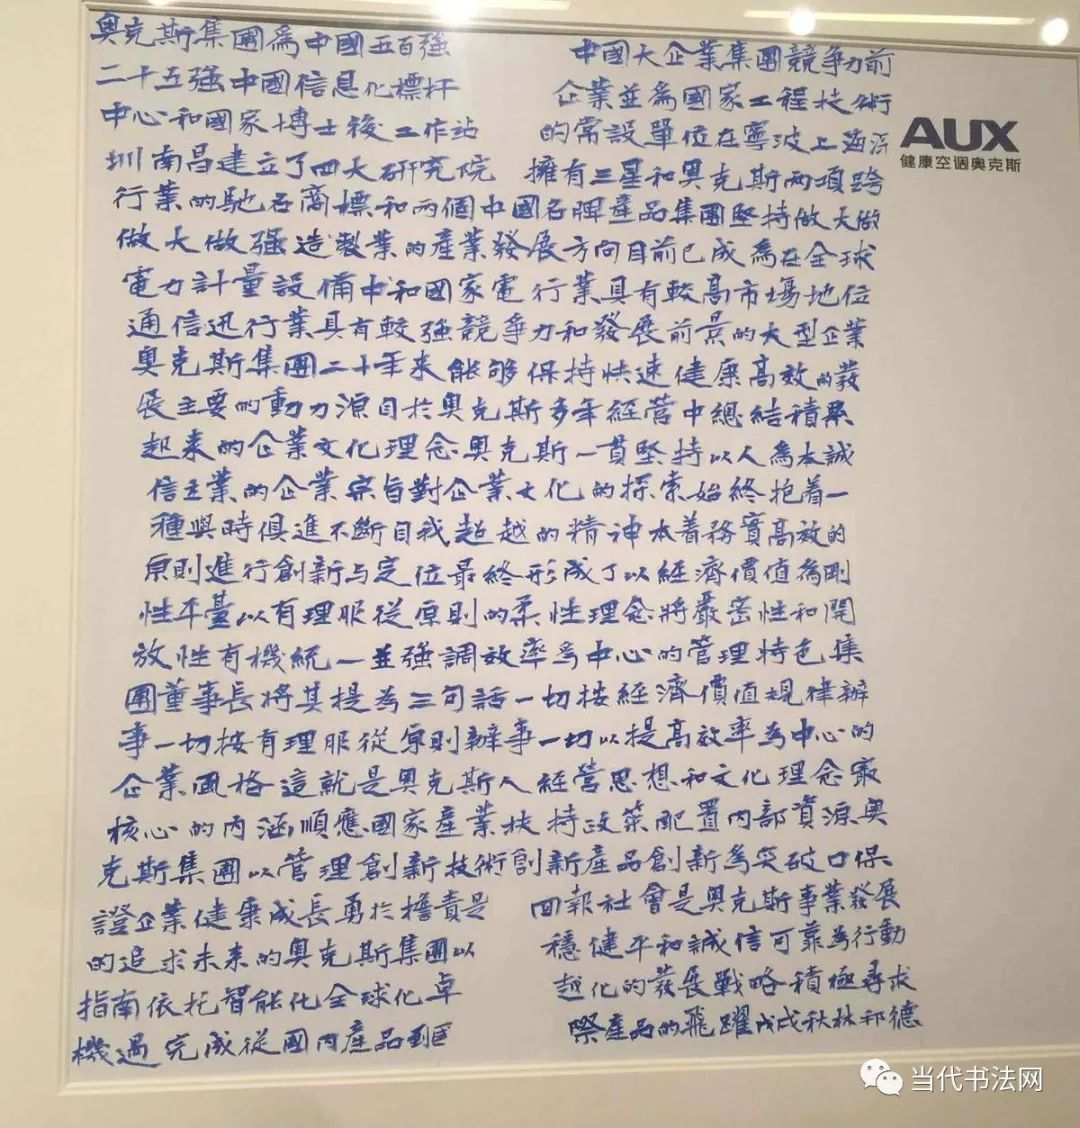 奥克斯集團為中國五百強 中國大企業集團競爭力前
二十五強中國信息化標杆 企業並為國家工程技術
中心和國家博士後工作站 的常設單位在寧波上海深
圳南昌建立了四大研究院 擁有三星和奧克斯兩項跨
行業的馳名商標和兩個中國名牌產品集團堅持做大做
做大做強造製業的產業發展方向目前已成為在全球
電力計量設備中和國家電行業具有較高市場地位
通信迅行業具有較強競爭力和發展前景的大型企業
奧克斯集團二十年來能够保持快速健康高效的發
展主要的動力源自於奧克斯多年經營中總結積累
起来的企業文化理念奧克斯一貫堅持以人為本誠
信立業的企業宗旨對企業文化的探索始終抱着一
種與時俱進不斷自我超越的精神本着務實高效的
原則進行創新与定位最終形成了以經濟價值為剛
性平臺以有理服從原則的柔性理念將嚴密性和開
放性有機統一並強調效率為中心的管理特色集
團董事長將其提為三句話一切按經濟價值規律辦
事一切按有理服從原則辦事一切以提高效率為中心的
企業風格這就是奧克斯人經營思想和文化理念最
核心的内涵順應國家產業扶持政策配置内部資源奧
克斯集團以管理創新技術創新產品創新為突破口保
證企業健康成長勇於擔責是 回報社會是奧克斯事業發展
的追求未来的奧克斯集團以 穩健平和誠信可靠為行動
指南依托智能化全球化卓 越化的發展戰略積極尋求
機遇完成從國内產品到國 際產品的飛躍戊戌秋林邦德
AUX
健康空调奥克斯
当代书法网